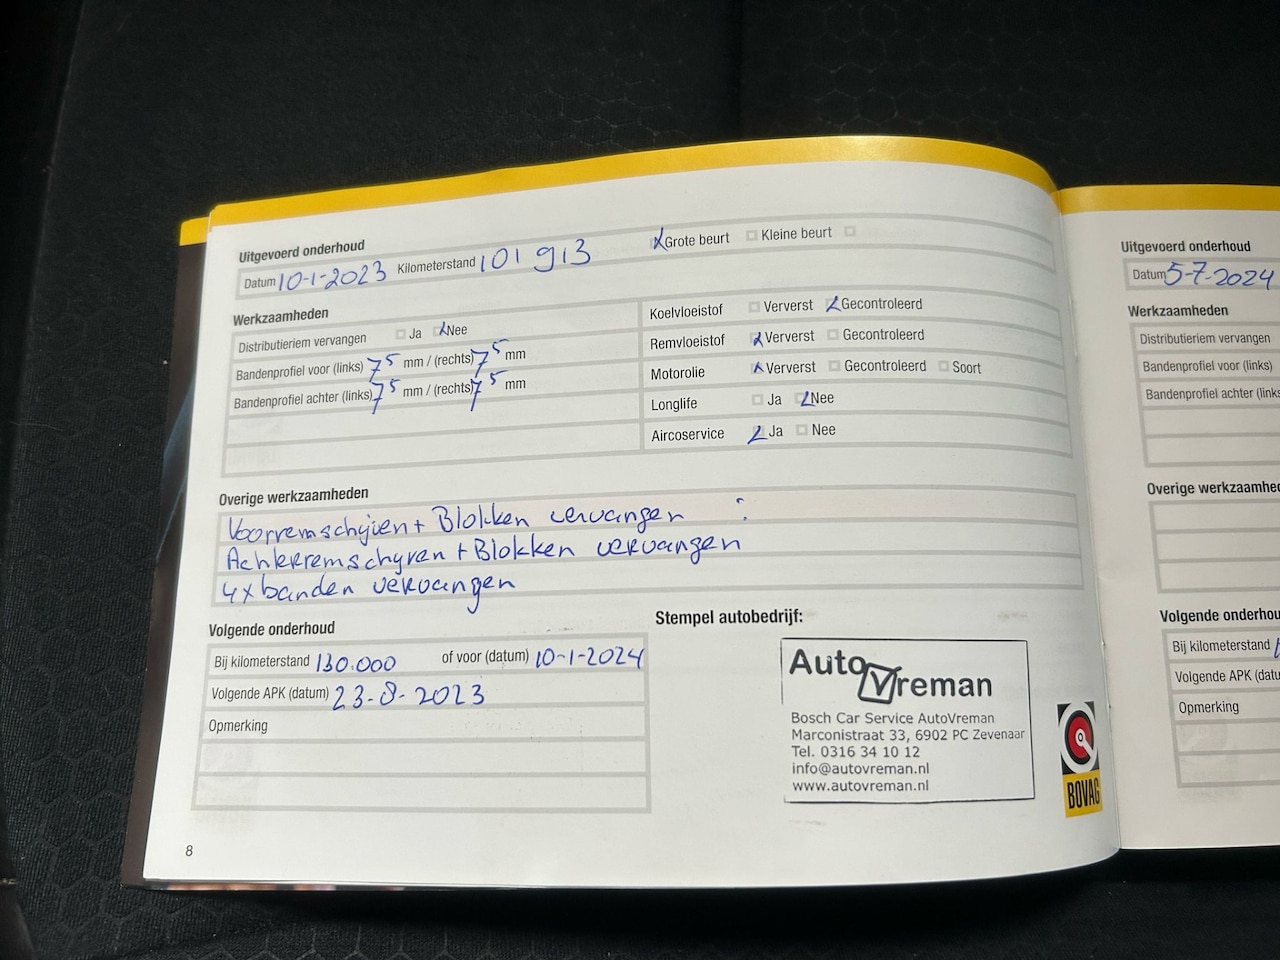 Uitgevoerd onderhoud
Datum 10-1-2023 Kilometerstand 101 913 Grote beurt Kleine beurt
Werkzaamheden
Distributieriem vervangen Ja Nee
Bandenprofiel voor (links) 7 5 mm / (rechts) 7 5 mm
Bandenprofiel achter (links) 7 5 mm / (rechts) 7 5 mm
Koelvloeistof Ververst Gecontroleerd
Remvloeistof Ververst Gecontroleerd
Motorolie Ververst Gecontroleerd Soort
Longlife Ja Nee
Aircoservice Ja Nee
Overige werkzaamheden
Voorremschijven + Blokken vervangen :
Achterremschyven + Blokken vervangen
4x banden vervangen
Volgende onderhoud
Bij kilometerstand 130.000 of voor (datum) 10-1-2024
Volgende APK (datum) 23-8-2023
Opmerking
8
Stempel autobedrijf:
Auto Vreman
Bosch Car Service AutoVreman
Marconistraat 33, 6902 PC Zevenaar
Tel. 0316 34 10 12
info@autovreman.nl
www.autovreman.nl
BOVAG
Uitgevoerd onderhoud
Datum 5-7-2024
Werkzaamheden
Distributieriem vervangen
Bandenprofiel voor (links)
Bandenprofiel achter (links
Overige werkzaamhe
Volgende onderhou
Bij kilometerstand
Volgende APK (datu
Opmerking